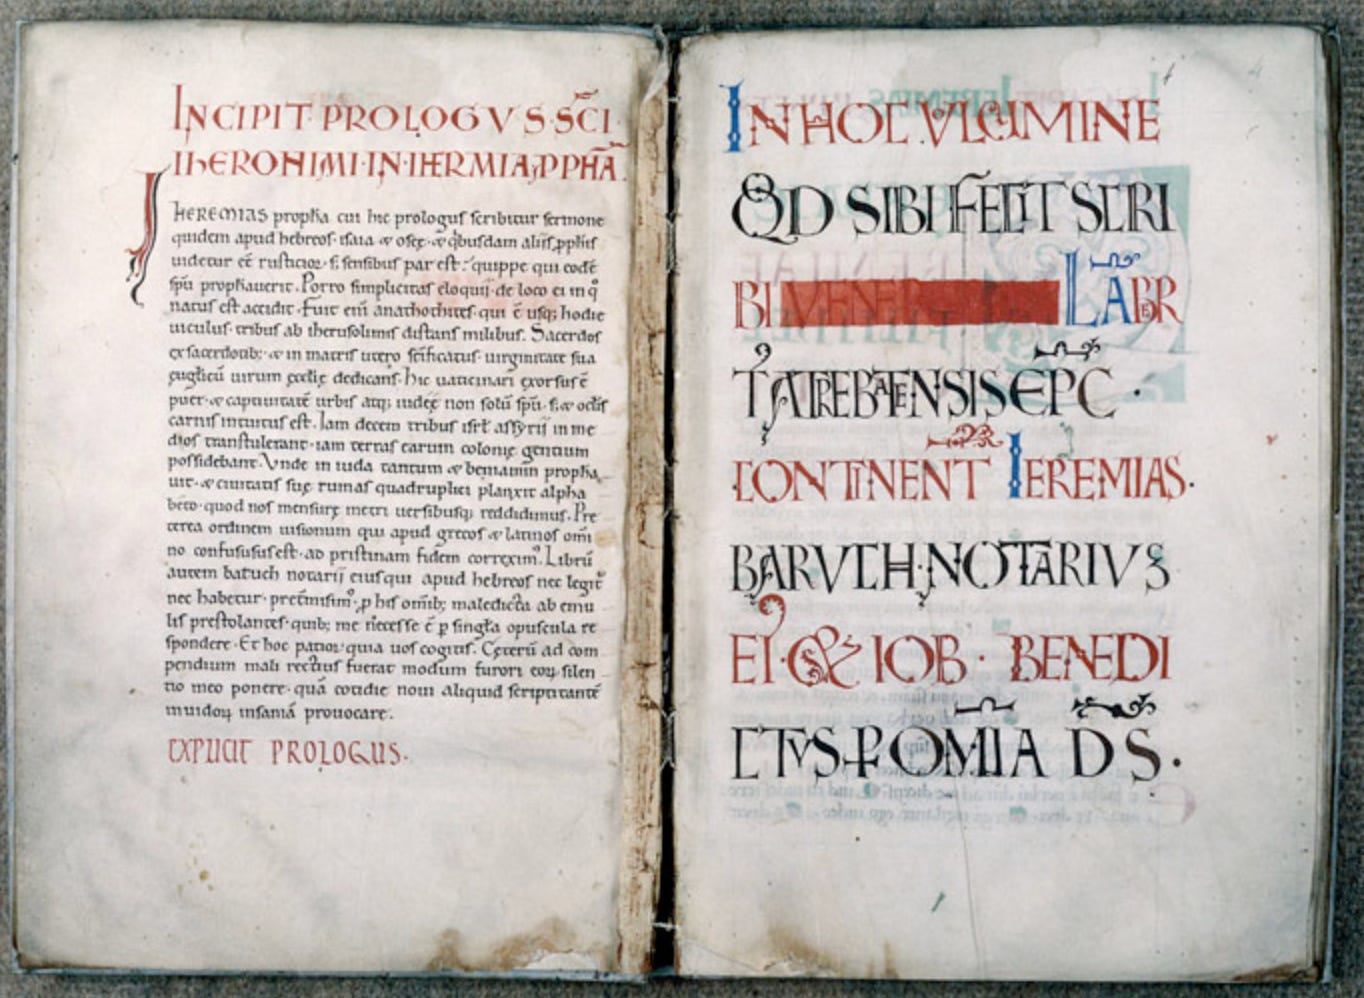 INCIPIT PROLOGVS SC̄I
IhERONIMI·IN·IHERMIĀ·P̄PHĀ
IHEREMIAS propħa cui hic prologuſ ſcribitur ſermone
quidem apud hebreoſ· iſaia & oſeę·& q̇buſdam alijſ ꝓpħiſ
uidetur eē ruſticior· ſ; ſenſibuſ par eſt· quippe qui eodē
ſpū prophauerit. Porro ſimplicitaſ eloquij·de loco ei in q̊
natuſ eſt accidit· Fuit eni̅ anathothiteſ· qui ē uſq; hodie
uiculuſ· tribuſ ab iheruſolimiſ diſtanſ milibuſ. Sacerdoſ
ex ſacerdotib;·& in matriſ utero ſc̄ificatuſ· uirginitate ſua
euglicū uirum eccłię dedicanſ· hic uaticinari exorſuſ ē
puer·& captiuitatē urbiſ atq; iudeę non ſolū ſpū· ſ;& oculiſ
carniſ intuituſ eſt. Iam decem tribuſ iſrł aſſyrij in me
dioſ tranſtulerant·iam terraſ earum colonię gentium
poſſidebant· Vnde in iuda tantum & beniamin propħa
uit·& ciuitatiſ ſuę ruinaſ quadruplici planxit alpha
beto·quod noſ menſurę metri uerſibuſq; reddidimuſ· Pre
terea ordinem uiſionum qui apud grecoſ & latinoſ omi
no confuſuſ eſt·ad priſtinam fidem correxim᷒. Librū
autem baruch notarij eiuſ qui apud hebreoſ nec legit᷑
nec habetur· pretmiſim᷒· ꝓ hiſ om̄ib; maledicta ab emu
liſ preſtolanteſ·quib; me neceſſe ē ꝑ ſingła opuſcula re
ſpondere· Et hoc patior·quia uoſ cogitiſ· Cęterū ad com
pendium mali rectiuſ fuerat modum furori eoꝝ ſilen
tio meo ponere·quā cotidie noui aliquid ſcriptitantē
inuidoꝝ inſaniā prouocare.
EXPLICIT PROLOGUS.
IN HOC VLCIMINE
QD SIBI FECIT SCRI
BI LĀBR
T᷒ ATREBATENSIS EP̄C·
CONTINENT᷑ IEREMIAS·
BARVCH·NOTARIVS
EI᷒·& IOB· BENEDI
CTVS P OM̄IA D̄S·